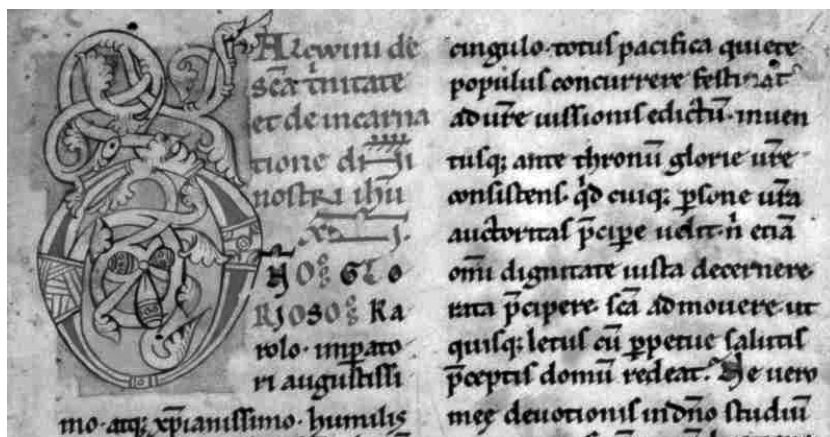 Alcwini de
scā tͥnitate
et de incarna
tione dn̄i
nostri ihū
xp̄i.
NO GLO
RIOSO KA
rolo. imꝑato
ri augustissi
mo. atq; xp̄ianissimo. humilis
cingulo. totus pacifica quiete
populus concurrere festinat
ad urē iussionis edictū. inuen
tusq; ante thronū glorie urē
consistens. qͥd cuiq; ꝑsone urā
auctoritas p̄cipe uelit. n̄ etiā
omī dignitate iusta decernere.
rata p̄cipere. scā admouere. ut
quisq; letus cū ꝑpetue salutis
p̄ceptis domū redeat. Ne uero
mee deuotionis in dn̄o studiū